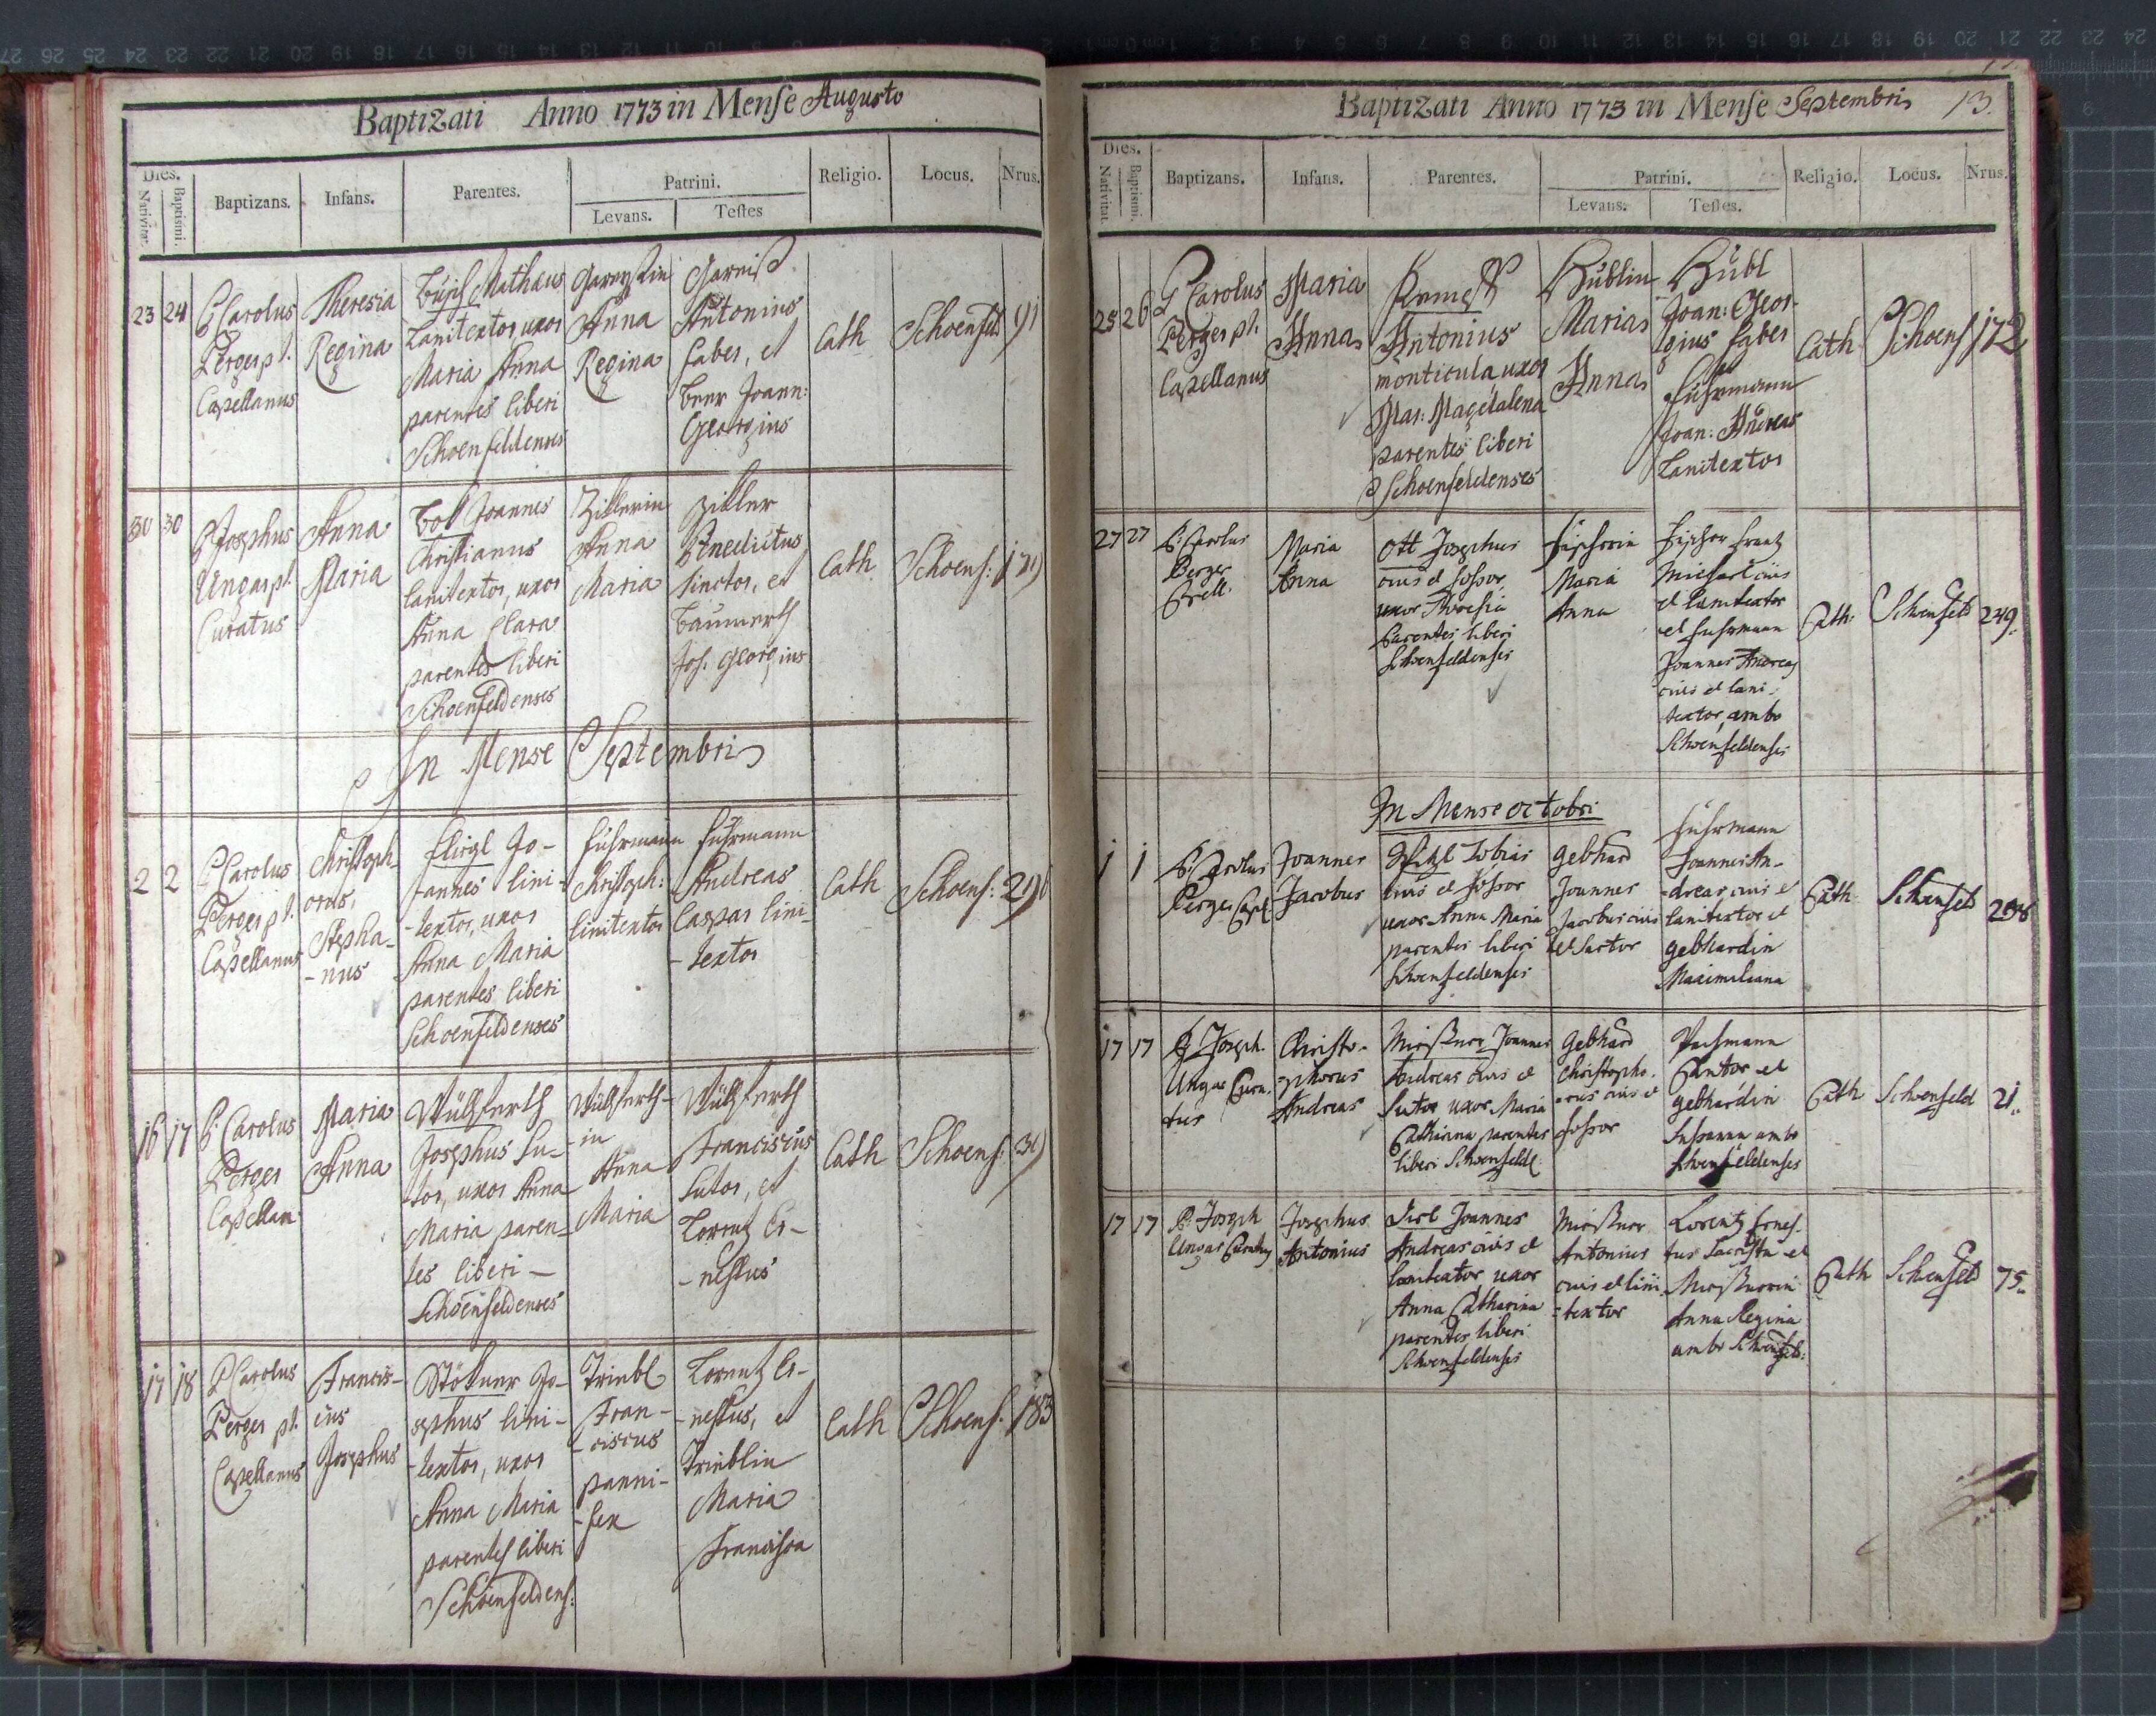 Baptizati Anno 1773 in Mense Augusto
Dies.
Nativitat.
Baptismi.
Baptizans.
Infans.
Parentes.
Patrini.
Levans.
Testes
Religio.
Locus.
Nrus.
23
24
P Carolus
Perger pl.
Capellanus
Theresia
Regina
Mathaus
Lanitextor, uxor
Maria Anna
parentes liberi
Schoenfeldenses
Anna
Regina
Antonius
faber, et
Beer Joann:
Georgius
Cath
Schoenfeld
91
30
30
P Josephus
Ungar pl.
Curatus
Anna
Maria
Joannes
Christianus
lanitextor, uxor
Anna Clara
parentes liberi
Schoenfeldenses
Zillerin
Anna
Maria
Ziller
Benedictus
tinctor, et
Jos. Georgius
Cath
Schoenf:
In Mense Septembris
2
2
P Carolus
Perger pl.
Capellanus
Christoph-
orus,
Stepha-
-nus
Jo-
-annes lini-
-textor, uxor
Anna Maria
parentes liberi
Schoenfeldenses
Fuhrmann
Christoph:
linitextor
Fuhrmann
Andreas
Caspar lini-
-textor
Cath
Schoenf:
16
17
P. Carolus
Perger
Capellan
Maria
Anna
Josephus Su-
tor, uxor Anna
Maria paren-
tes liberi —
Schoenfeldenses
-in
Anna
Maria
Franciscus
Sutor, et
Lorentz Er-
-nestus
Cath
Schoenf:
17
18
P Carolus
Perger pl.
Capellanus
Francis-
cus
Josephus
Stöckner Jo-
sephus lini-
-textor, uxor
Anna Maria
parentes liberi
Schoenfeldens:
Triebl
Fran-
-ciscus
panni-
-fex
Lorentz Er-
-nestus, et
Trieblin
Maria
Francisca
Cath
Schoenf:
183
Baptizati Anno 1773 in Mense Septembris
13.
Dies.
Nativitat.
Baptismi.
Baptizans.
Infans.
Parentes.
Patrini.
Levans.
Testes.
Religio.
Locus.
Nrus.
25
26
P Carolus
Perger pl.
Capellanus
Maria
Anna
Antonius
monticula uxor
Mar: Magdalena
parentes liberi
Schoenfeldenses
Hüblin
Maria
Anna
Hübl
Joan: Geor-
gius faber
Fuhrmann
Joan: Andreas
Lanitextor
Cath
Schoenf
172
27
27
P. Carolus
Perger
Maria
Anna
Ott Josephus
civis et fossor
uxor Theresia
Parentes liberi
Schoenfeldenses
Fischerin
Maria
Anna
Fischer Frantz
Michael civis
et lanitextor
et Fuhrmann
Joannes Andreas
civis et lani-
textor, ambo
Schoenfeldenses
Cath:
Schoenfeld
249.
In Mense octobri
1
1
P. Carolus
Perger Capl
Joannes
Jacobus
Tobias
civis et fossor
uxor Anna Maria
parentes liberi
Schoenfeldenses
Gebhard
Joannes
Jacobus civis
et Sartor
Fuhrmann
Joannes An-
-dreas civis et
lanitextor et
Gebhardin
Maximiliana
Cath
Schoenfeld
17
17
P. Joseph.
Ungar Cura-
tus
Christo-
phorus
Andreas
Joannes
Andreas civis et
Sutor uxor Maria
Catharina parentes
liberi Schoenfeld:
Gebhard
Christopho-
-rus civis et
fossor
Cantor et
Gebhardin
Susanna ambo
Schoenfeldenses
Cath
Schoenfeld
21.
17
17
P. Joseph
Ungar Curatus
Josephus
Antonius
Joannes
Andreas civis et
lanitextor uxor
Anna Catharina
parentes liberi
Schoenfeldenses
Antonius
civis et lini-
-textor
Lorentz Ernes-
tus Sacrista et
Anna Regina
ambo Schoenfeld:
Cath
Schoenfeld
75.